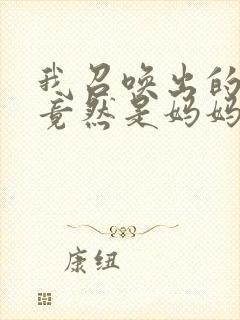 我召唤出的
竟然是妈妈
康纽